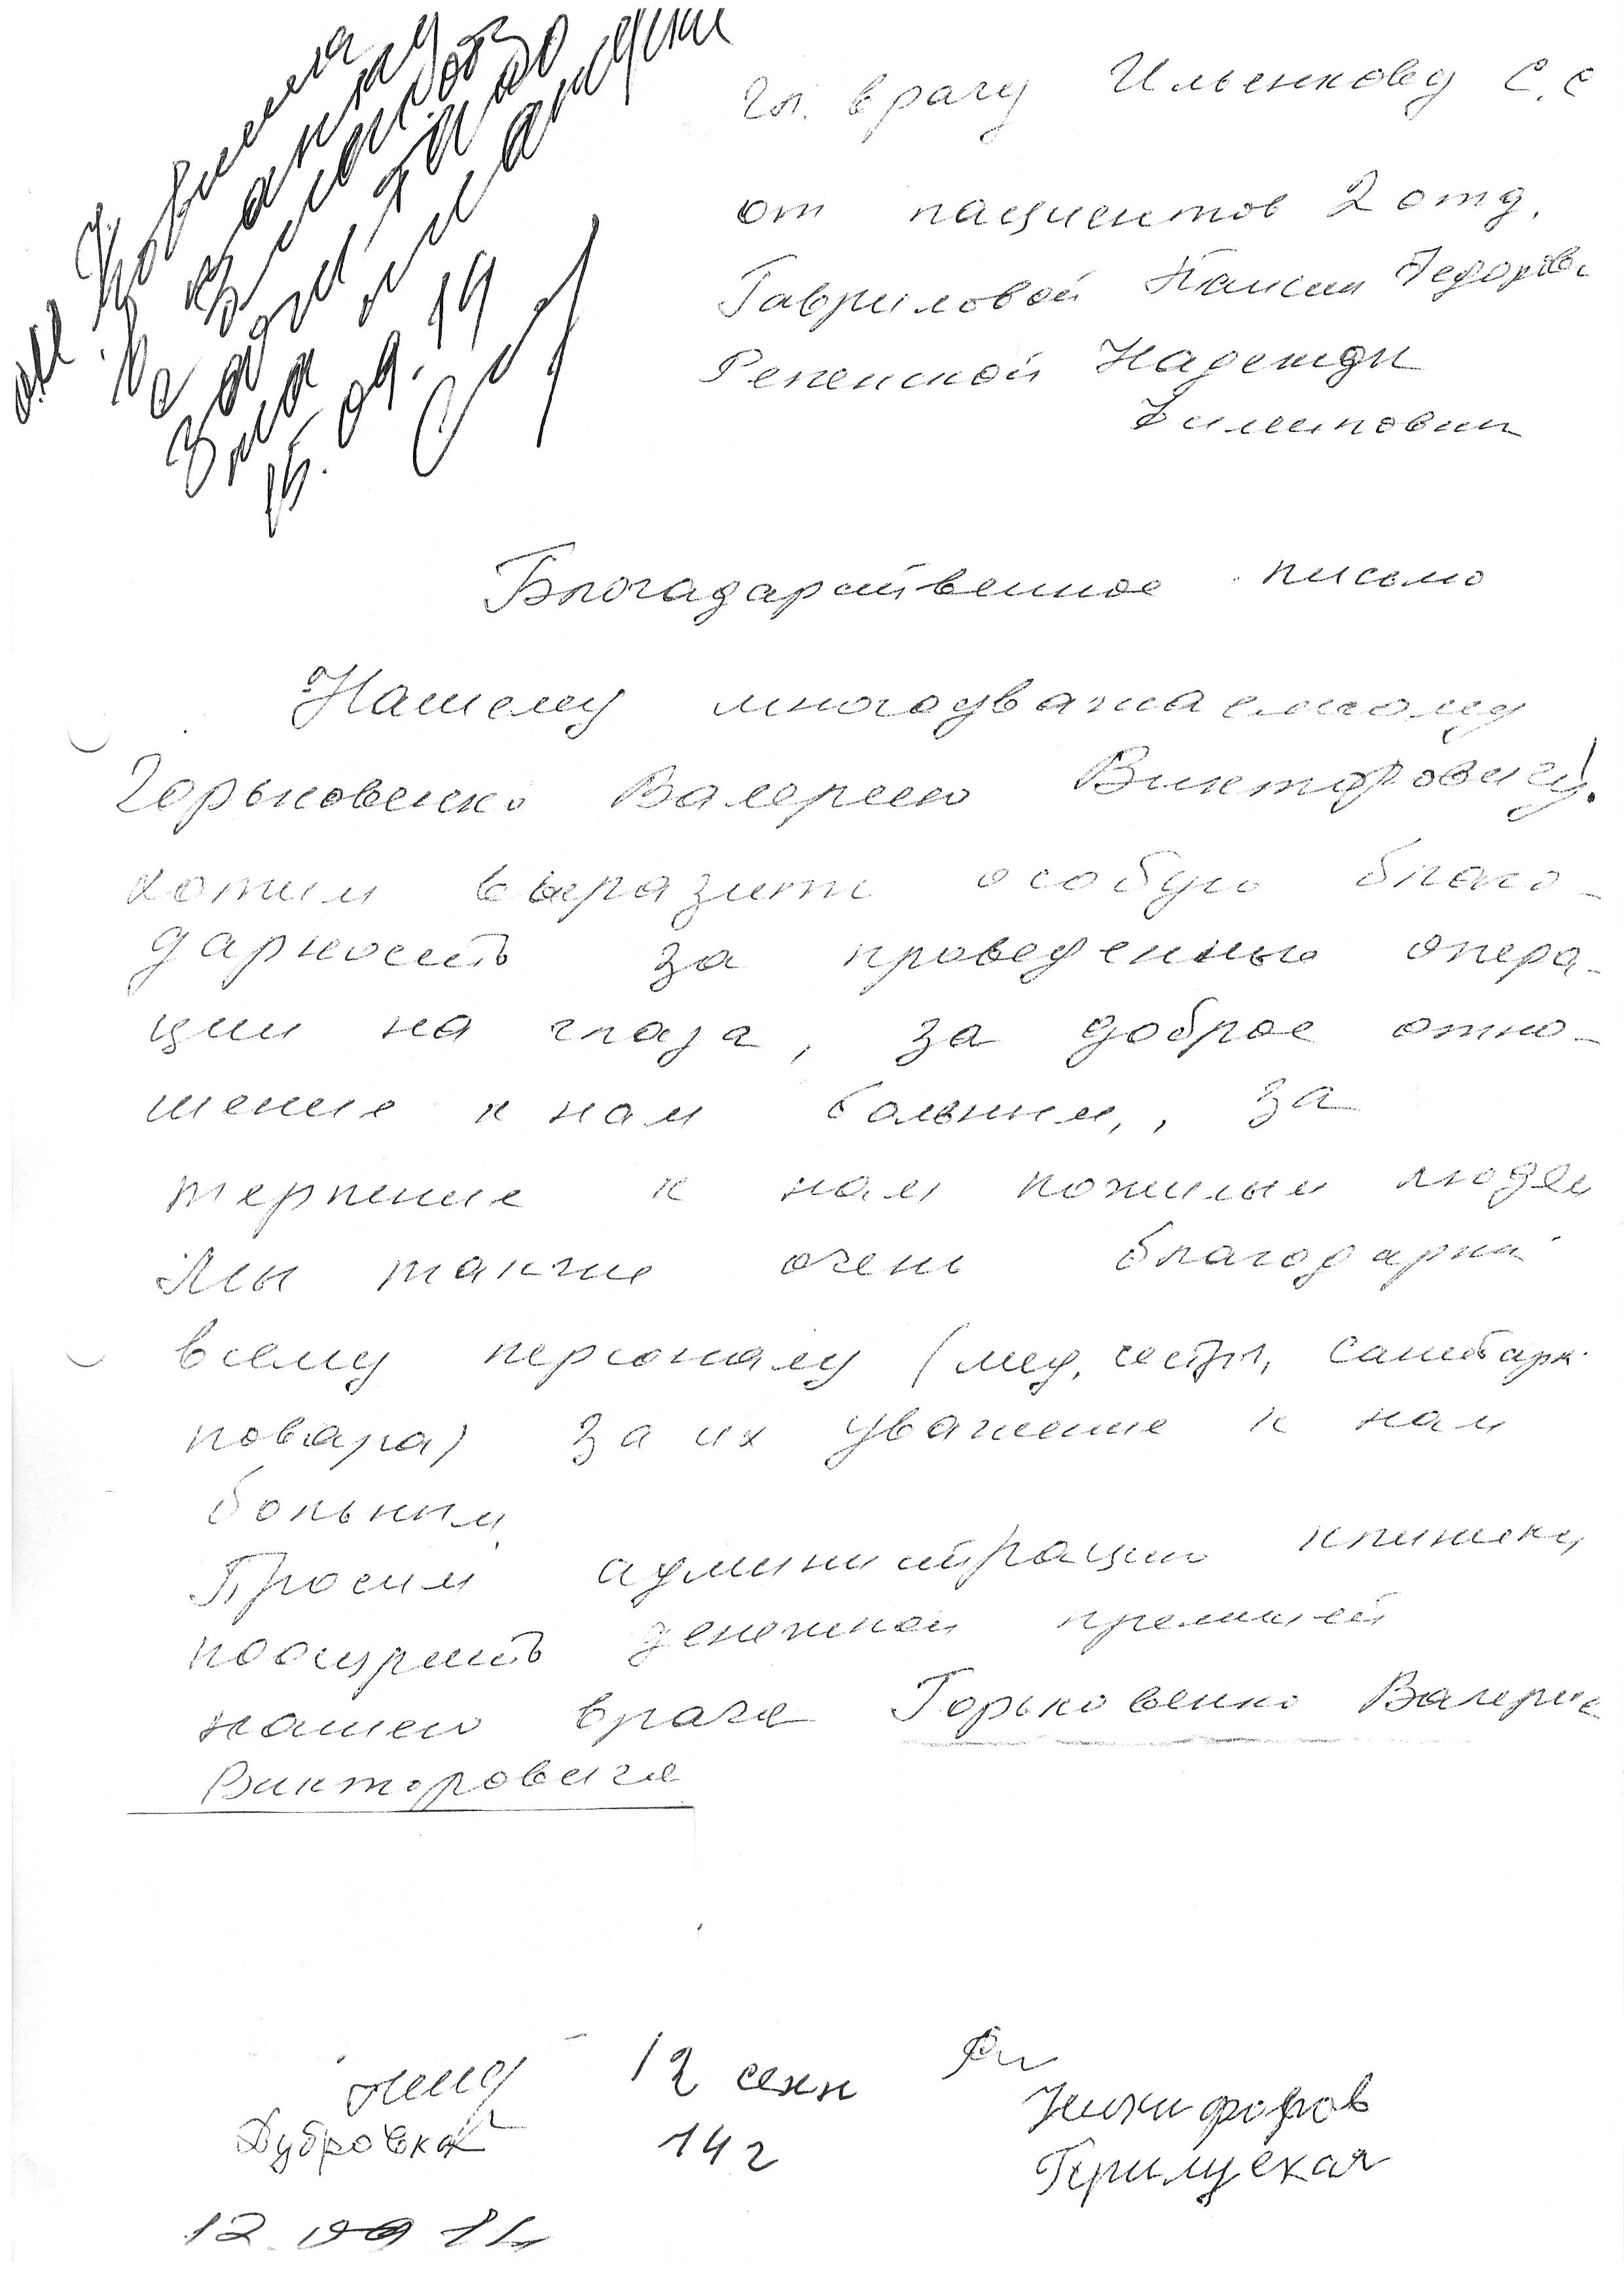 Гл. врачу Ильенкову С.С
от пациентов 2 отд.
Гавриловой Таисии Федоров.
Репенской Надежды
Благадарственное письмо
Нашему многоуважаемому
Горьковенко Валерию Викторовичу!
хотим выразить особую благо-
дарность за проведенные опера-
ции на глаза, за доброе отно-
шение к нам больным, за
терпение к нам пожилым людям
Мы также очень благодарны
всему персоналу (мед. сестры, санитарк
повара) за их уважение к нам
больным
Просим администрацию клиники
поощрить денежной премией
нашего врача Горьковенко Валерие
Викторовича
12 сент
Никифоров
Дубровская
14 г
Прилуцкая
12.09.14